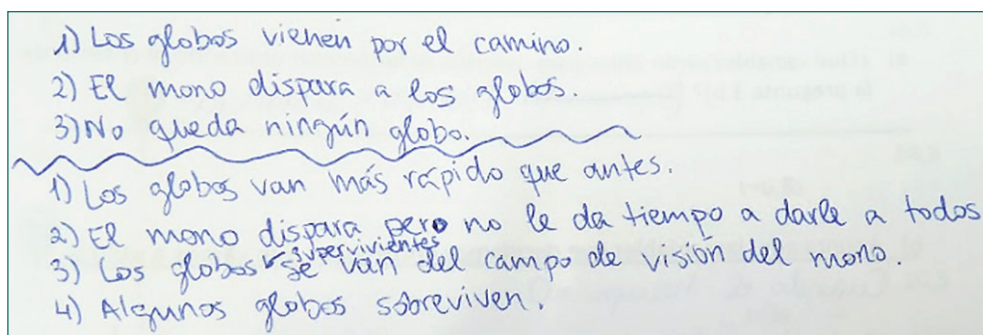 1) Los globos vienen por el camino.
2) El mono dispara a los globos.
3) No queda ningún globo.
1) Los globos van más rápido que antes.
2) El mono dispara pero no le da tiempo a darle a todos
3) Los globos supervivientes se van del campo de visión del mono.
4) Algunos globos sobreviven.